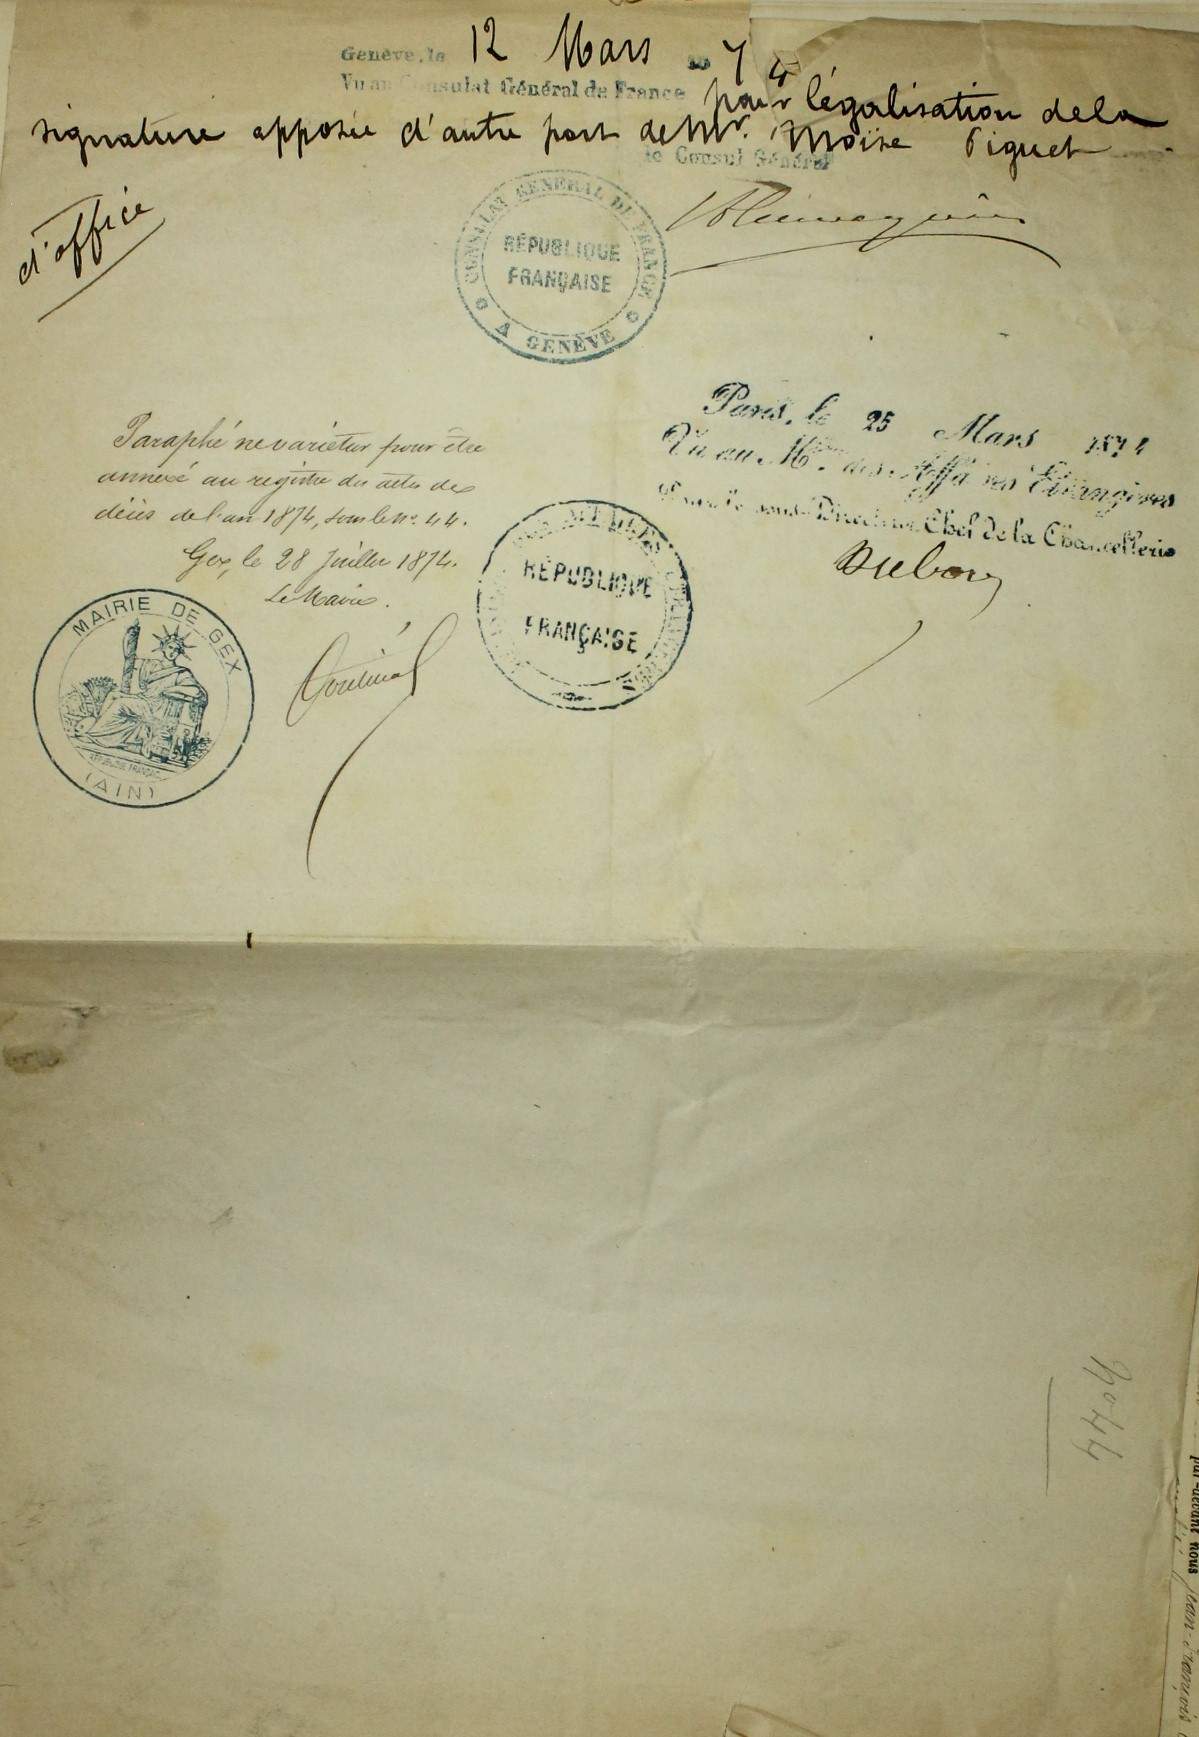 Genève, le 12 Mars 18 74
Vu au Consulat Général de France pour légalisation de la
signature apposée d'autre part de Mr. Moïse Piguet
le Consul Général
d'office
CONSULAT GÉNÉRAL DE FRANCE
RÉPUBLIQUE
FRANÇAISE
A GENÈVE
Paris, le 25 Mars 1874
Vu au Mtre des Affaires Etrangères
Pour le sous-Directeur Chef de la Chancellerie
Dubois
Paraphé ne varietur pour être
annexé au registre des actes de
décès de l'an 1874, sous le no. 44.
Gex, le 28 Juillet 1874.
Le Maire.
RÉPUBLIQUE
FRANÇAISE
MAIRIE DE GEX
RÉPUBLIQUE FRANÇAISE
(AIN)
No 44
par-devant nous